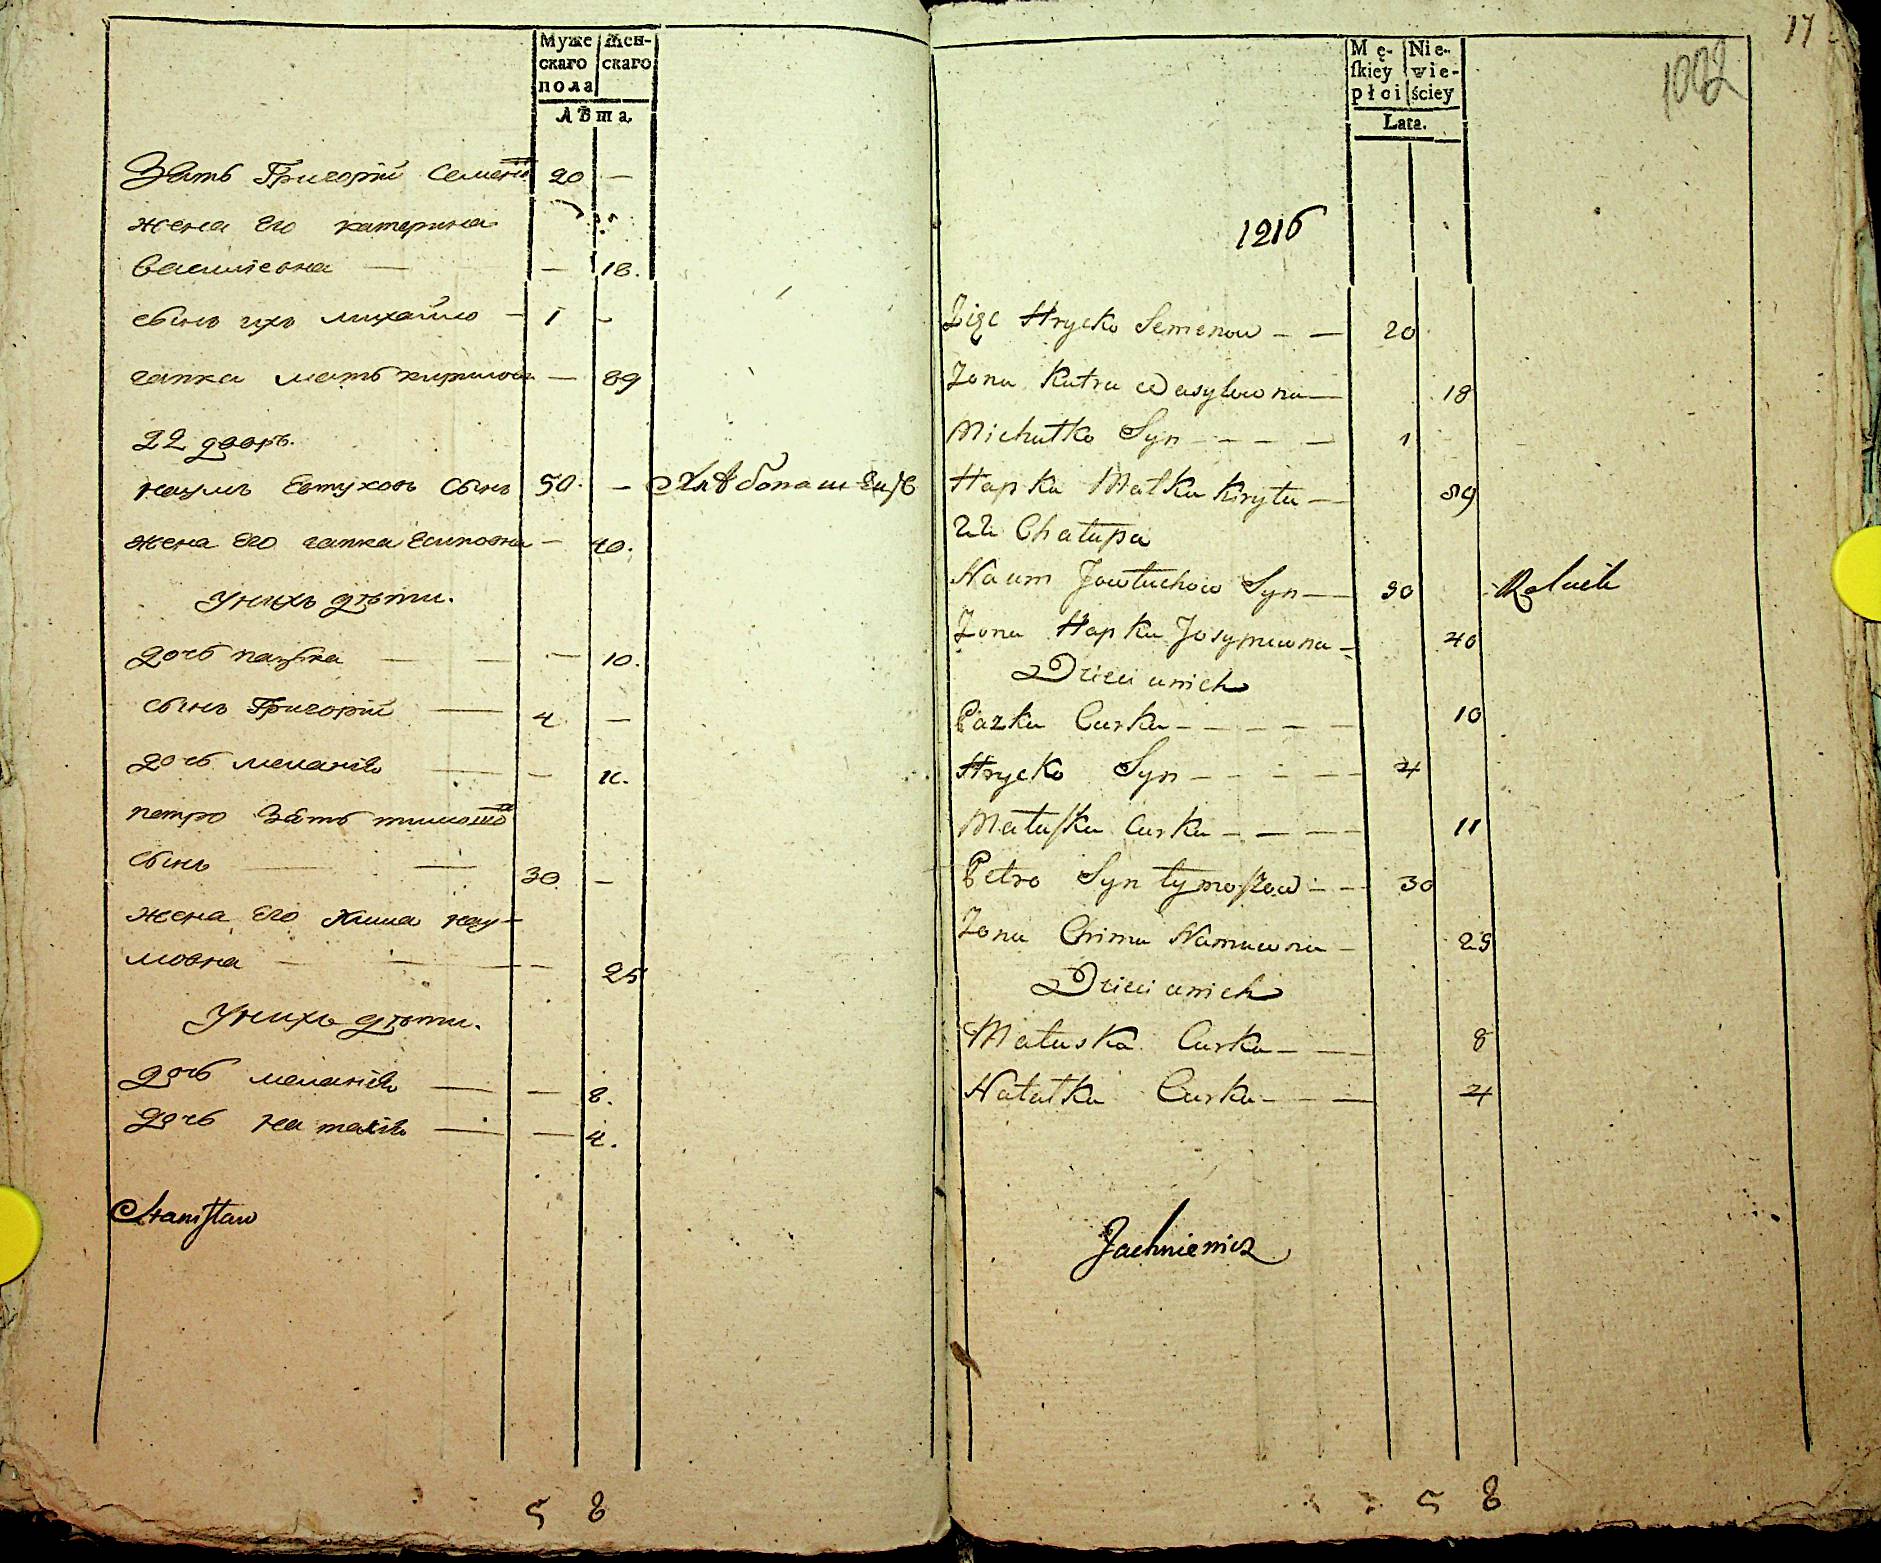 Муже Жен-
скаго скаго
пола
Лѣта,
Зять Григорій Семеновъ 20 —
жена Его катерина
Василіевна — — 18.
сынъ ихъ михайло — 1 —
гапка мать кирилова — 89
22 дворъ.
наумъ Евтуховъ сынъ 50. — Хлѣбопашецъ
жена Его гапка Есиповна — 40.
Унихъ дѣти.
дочь пазька — — — 10.
сынъ Григорій — 4 —
дочь меланія — — 11.
петро Зять тимошо
сынъ — — 30 —
жена Его Хима нау-
мовна — — — 25
Унихъ дѣти.
дочь меланія — — 8.
дочь наталія — — 4.
Staniſław
5 8
17
1002
Mę- Nie-
ſkiey wie-
płci ściey
Lata.
1216
Zięc Hrycko Semenow — — 20
Zona Katra Wasylowna — 18
Michałko Syn — — — — 1
Hapka Matka Kiryła — 89
22 Chałupa
Naum Jowtuchow Syn — — 50 Rolnik
Zona Hapka Josypowna — 40
Dzieci unich
Pazka Curka — — — — — 10
Hrycko Syn — — — — — 4
Małaſka Curka — — — — 11
Petro Syn tymoſzow — — 30
Zona Chima Namowna — 25
Dzieci unich
Małaska Curka — — — 8
Natałka Curka — — — 4
Jachniewicz
5 8